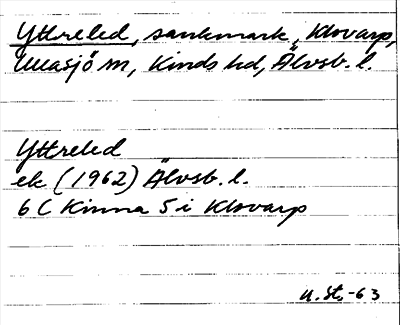 Yttreled, sankmark, Klovarp,
Ullasjö sn, Kinds hd, Älvsb. l.
Yttreled
ek (1962) Älvsb. l.
6 C Kinna 5 i Klovarp
U. St. -63